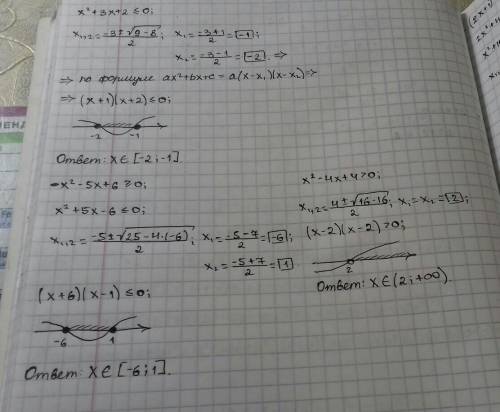 x²+3x+2≤0;
x₁,₂=(-3±√(9-8))/2; x₁=(-3+1)/2=-1;
x₂=(-3-1)/2=-2. ⇒
⇒ по формуле ax²+bx+c=a(x-x₁)(x-x₂)⇒
⇒ (x+1)(x+2)≤0;
-2 -1
Ответ: X∈[-2;-1].
-x²-5x+6≥0;
x²+5x-6≤0;
x₁,₂=(-5±√(25-4·(-6)))/2; x₁=(-5-7)/2=-6;
x₂=(-5+7)/2=1
(x+6)(x-1)≤0;
-6 1
Ответ: X∈[-6;1].
x²-4x+4>0;
x₁,₂=(4±√(16-16))/2; x₁=x₂=2;
(x-2)(x-2)>0;
2
Ответ: X∈(2;+∞).